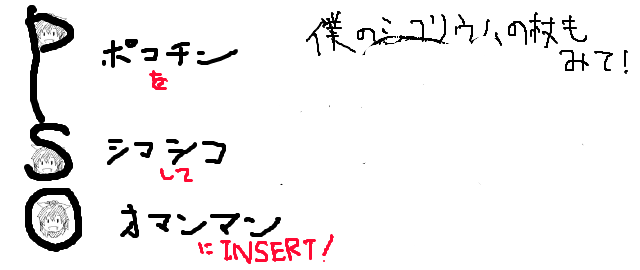 P ポコチン
を
S シマシコ
して
O オマンマン
にINSERT!
僕の の杖も
みて!